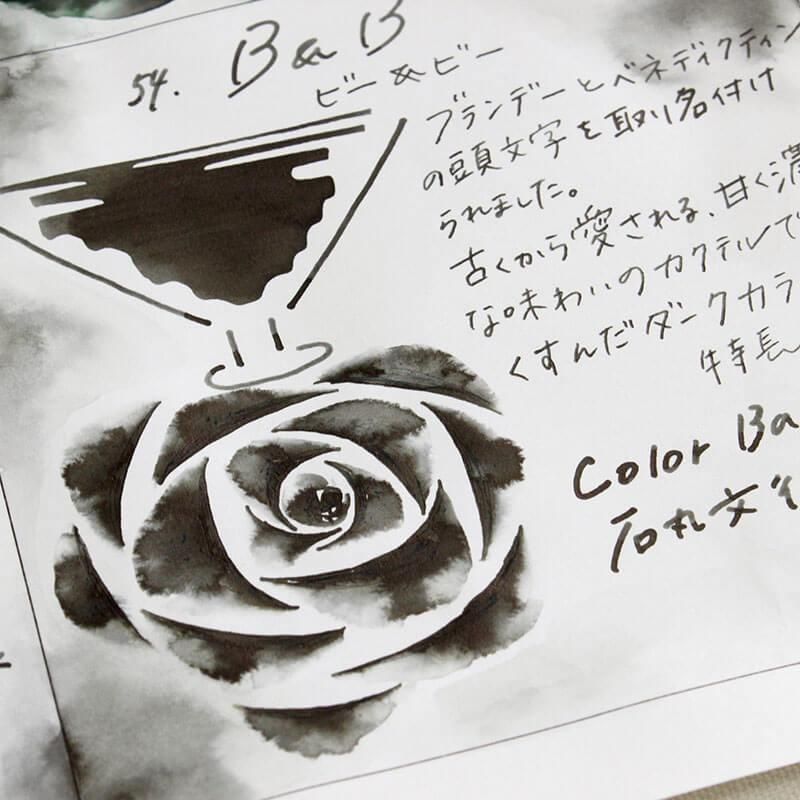 54. B&B
ビー&ビー
ブランデーとベネディクティン
の頭文字を取り名付け
られました。
古くから愛される、甘く濃
な味わいのカクテルで
くすんだダークカラ
特長
Color Ba
石丸文